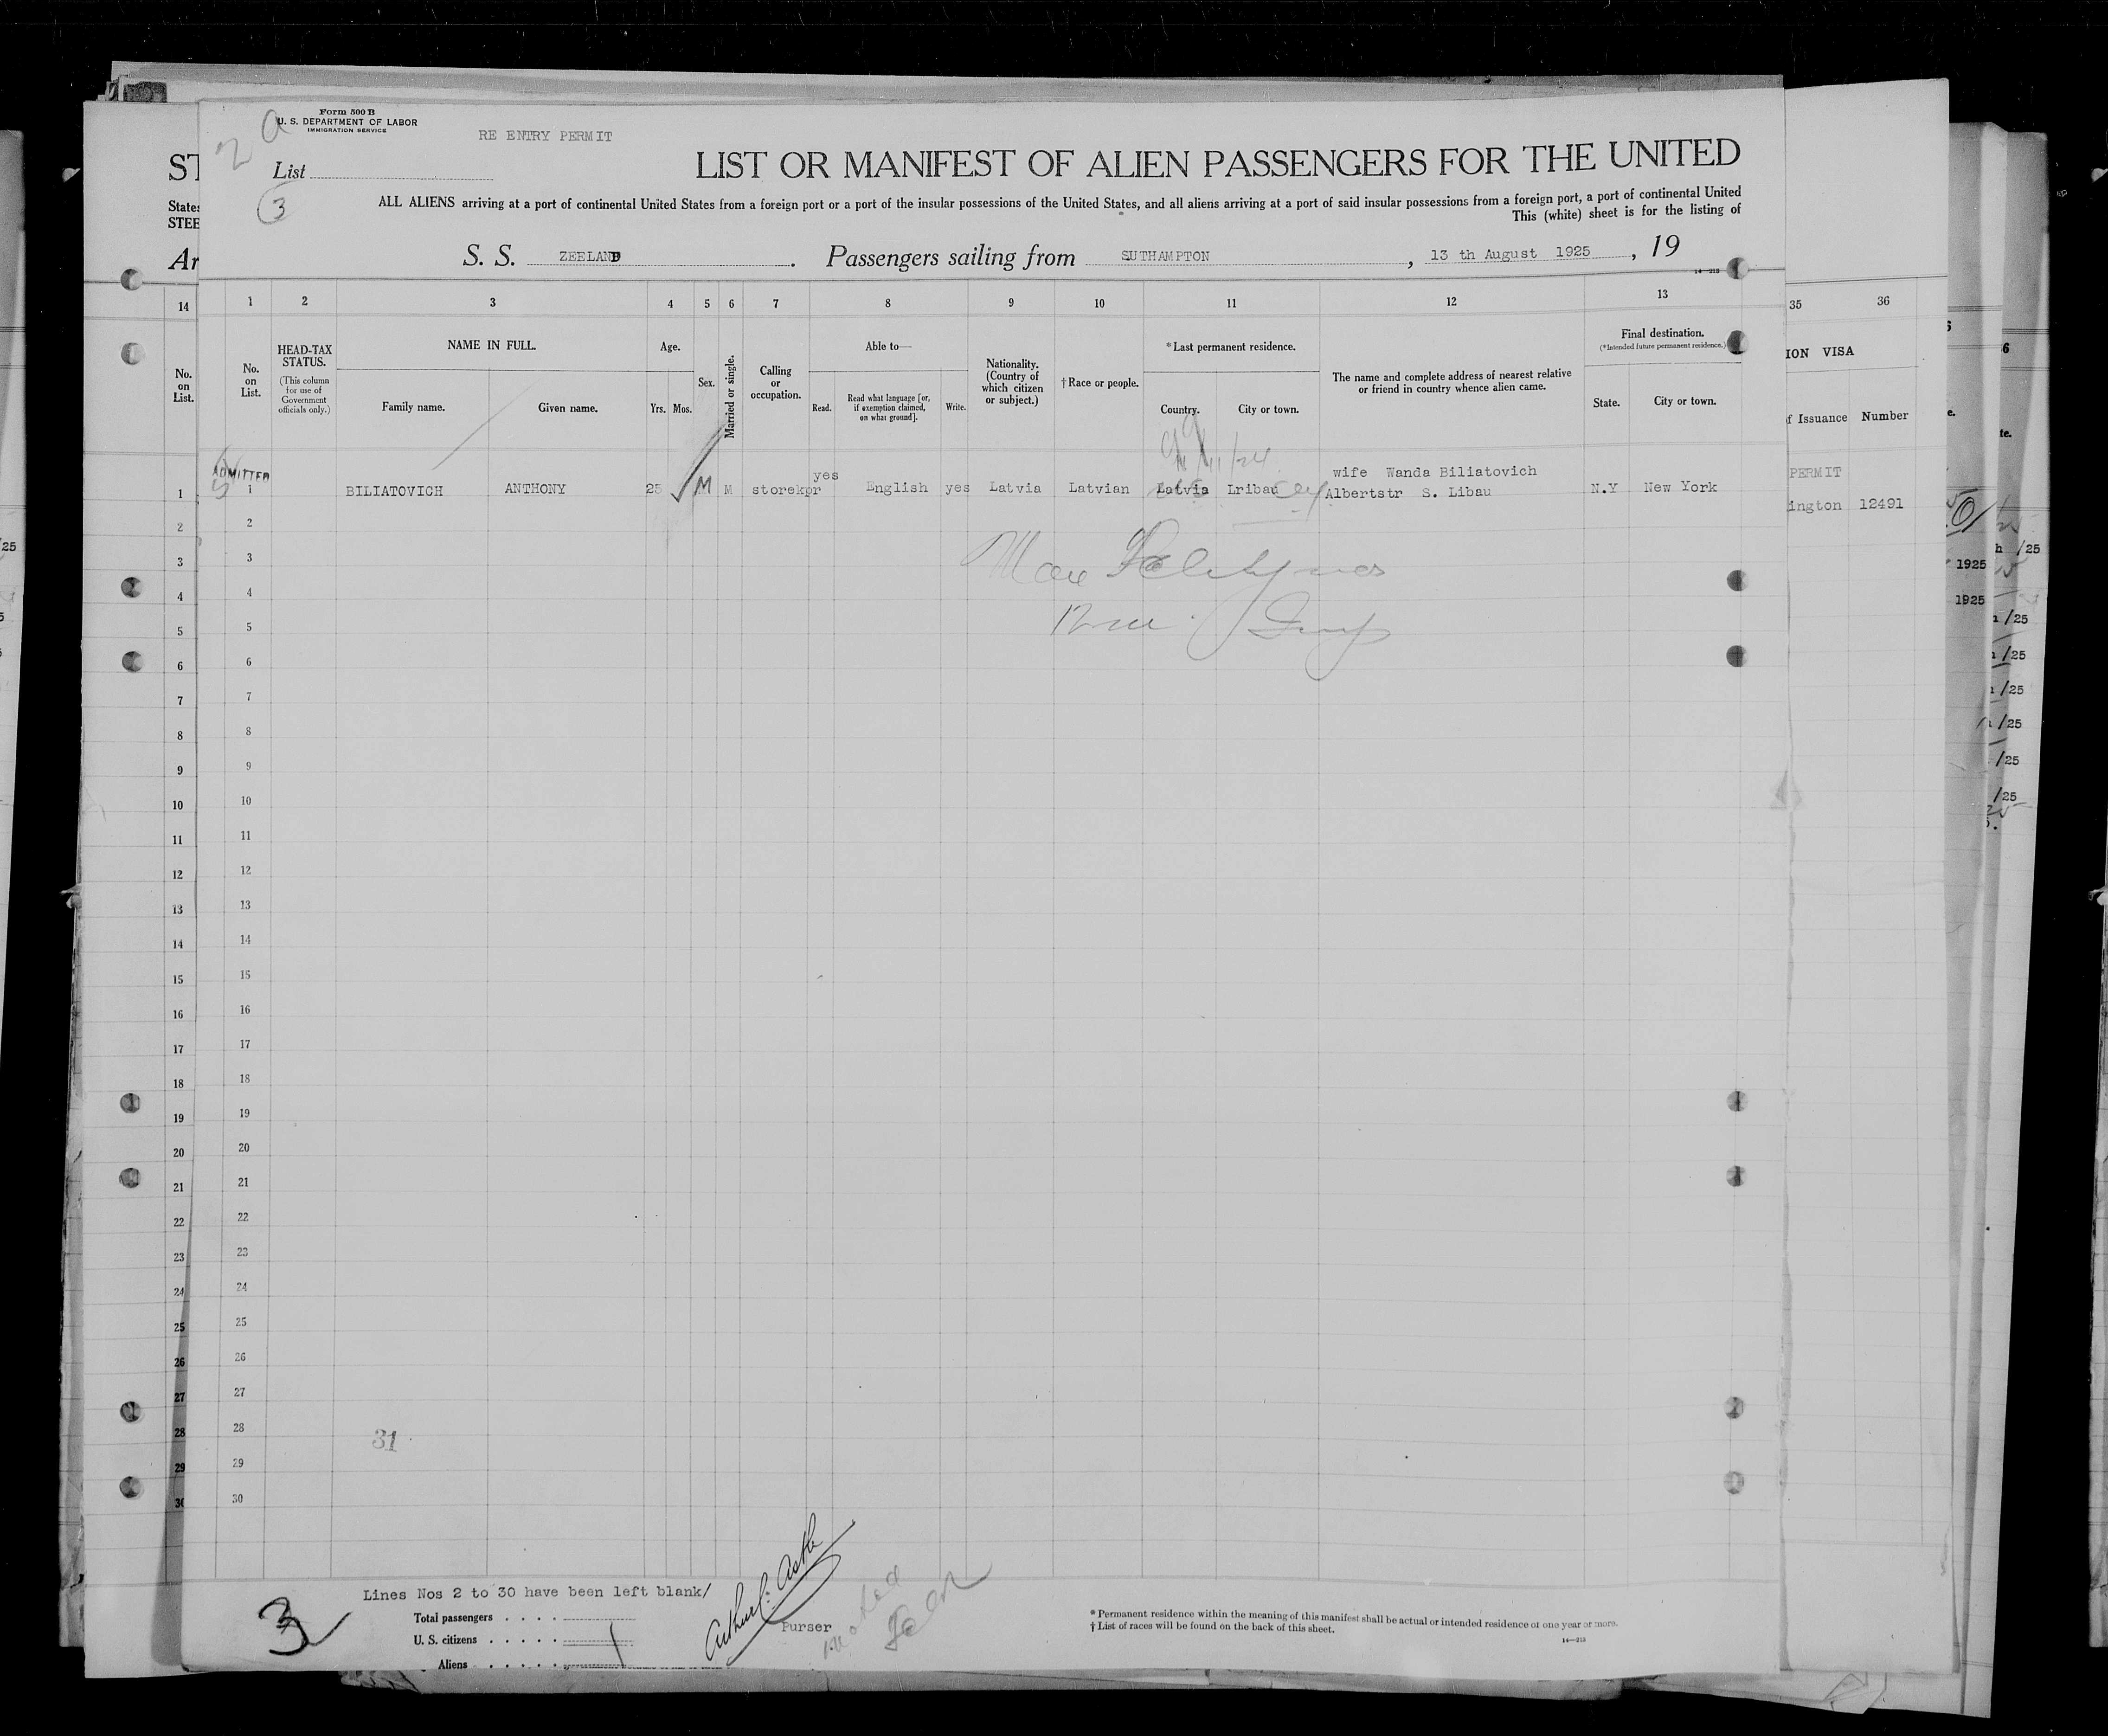 Form 500 B
U. S. DEPARTMENT OF LABOR
IMMIGRATION SERVICE
RE ENTRY PERMIT
2 a
List
3
LIST OR MANIFEST OF ALIEN PASSENGERS FOR THE UNITED
ALL ALIENS arriving at a port of continental United States from a foreign port or a port of the insular possessions of the United States, and all aliens arriving at a port of said insular possessions from a foreign port, a port of continental United
This (white) sheet is for the listing of
S. S. ZEELAND. Passengers sailing from SUTHAMPTON, 13 th August 1925, 19
14—213
ST
States
STEE
Ar
14 1 2 3 4 5 6 7 8 9 10 11 12 13 35 36
No. on List.
No. on List.
HEAD-TAX STATUS.
(This column for use of Government officials only.)
NAME IN FULL.
Family name. Given name.
Age.
Yrs. Mos.
Sex.
Married or single.
Calling or occupation.
Able to—
Read. Read what language [or, if exemption claimed, on what ground]. Write.
Nationality. (Country of which citizen or subject.)
†Race or people.
*Last permanent residence.
Country. City or town.
The name and complete address of nearest relative or friend in country whence alien came.
Final destination.
(*Intended future permanent residence.)
State. City or town.
ION VISA
f Issuance Number
11/24
ADMITTED
yes
wife Wanda Biliatovich
PERMIT
1 1 BILIATOVICH ANTHONY 25 M M storekpr English yes Latvia Latvian Latvia Lribau Albertstr S. Libau N.Y New York
ington 12491
2 2
3 3
4 4
5 5
6 6
7 7
8 8
9 9
10 10
11 11
12 12
13 13
14 14
15 15
16 16
17 17
18 18
19 19
20 20
21 21
22 22
23 23
24 24
25 25
26 26
27 27
28 28
29 29
30 30
1925
1925
/25
/25
/25
/25
/25
/25
/25
31
Lines Nos 2 to 30 have been left blank/
Total passengers
U. S. citizens
Aliens
3
Purser
* Permanent residence within the meaning of this manifest shall be actual or intended residence of one year or more.
† List of races will be found on the back of this sheet.
14—213